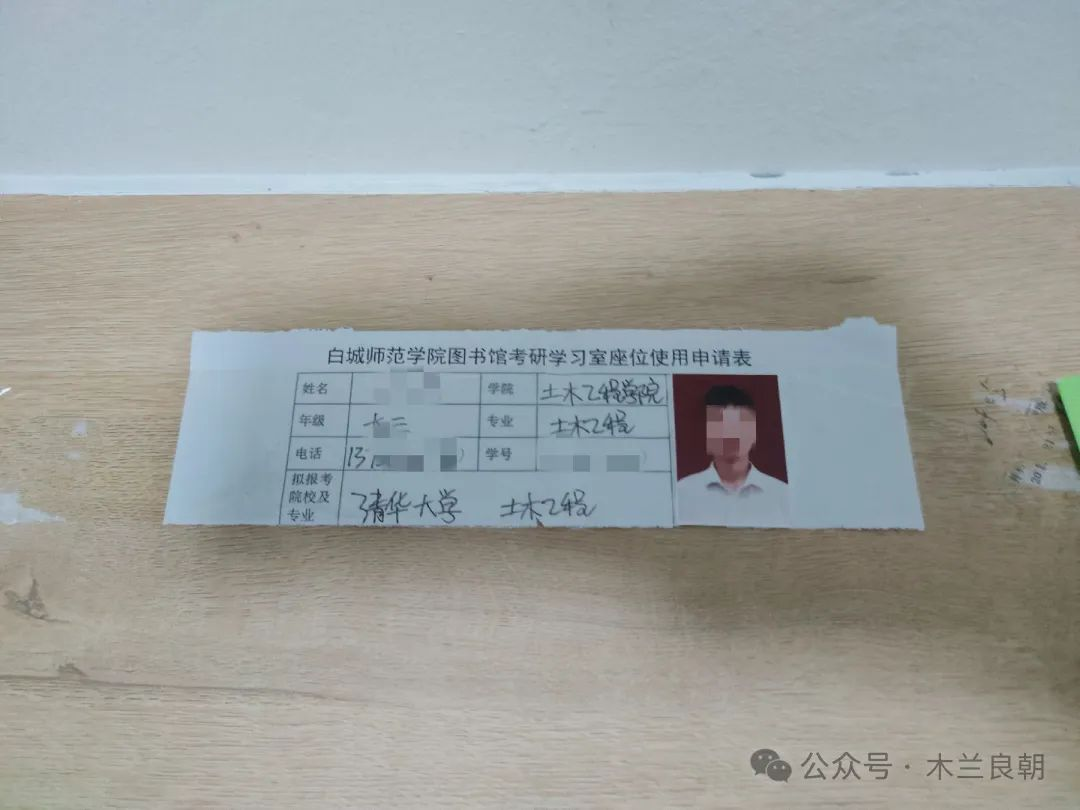 白城师范学院图书馆考研学习室座位使用申请表
姓名 学院 土木工程学院
年级 大三 专业 土木工程
电话 学号
拟报考院校及专业 清华大学 土木工程
公众号 · 木兰良朝